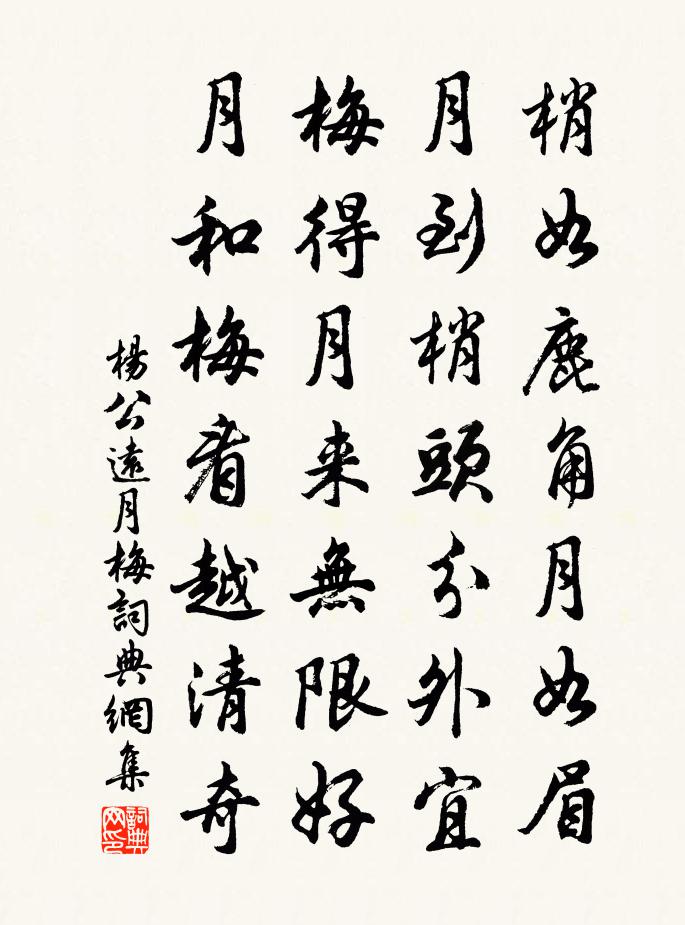 梢如鹿角月如眉
月到梢頭分外宜
梅得月来無限好
月和梅看越清奇
楊公遠月梅詞典網集
詞典网印